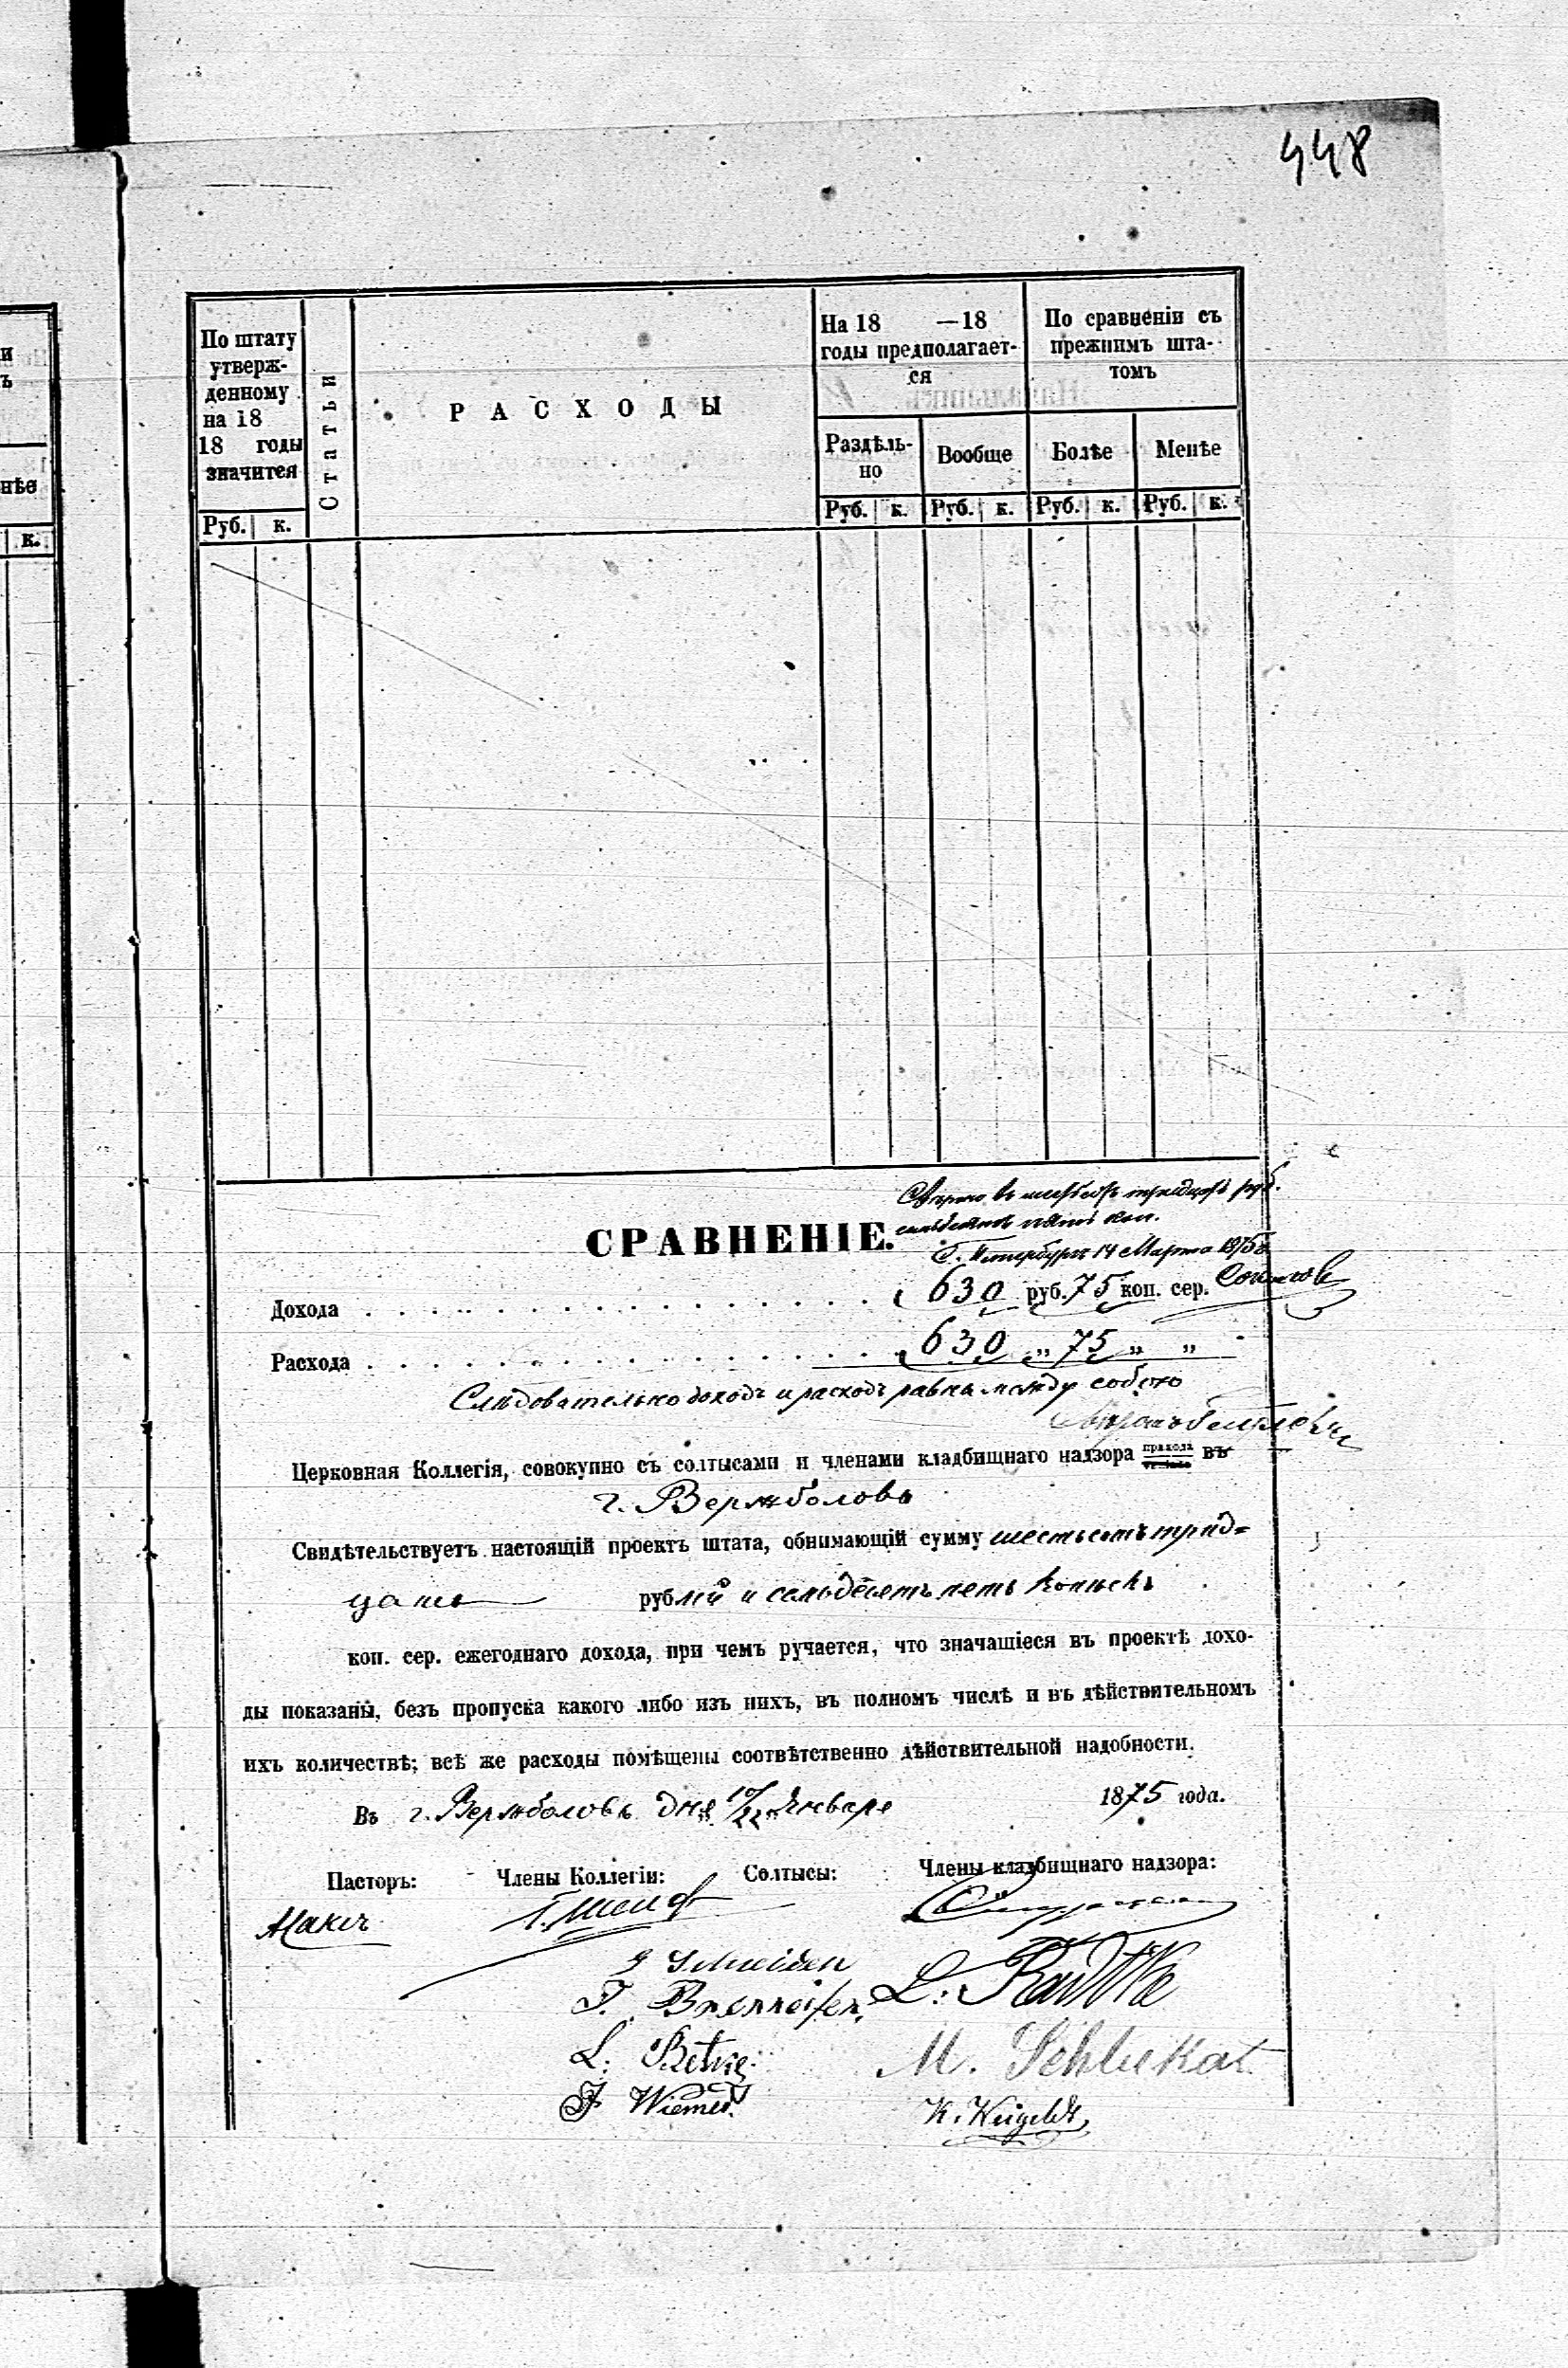 448
и
ъ
нѣе
к.
По штату
утверж-
денному
на 18
18 годы
значится
Руб. к.
Статьи
РАСХОДЫ
На 18 —18
годы предполагает-
ся
Раздѣль-
но
Вообще
Руб. к. Руб. к.
По сравненіи съ
прежнимъ шта-
томъ
Болѣе Менѣе
Руб. к. Руб. к.
руб.
семьдесятъ пять коп.
Петербургъ 14 Марта 1875
СРАВНЕНІЕ.
Дохода 630 руб. 75 коп. сер.
Расхода 630 „ 75 „ „
Слѣдовательно доходъ и расходъ равны между собою
Церковная Коллегія, совокупно съ солтысами и членами кладбищнаго надзора прихода въ
г. Вержболовѣ
Свидѣтельствуетъ настоящій проектъ штата, обнимающій сумму шестьсотъ трид=
цать рублей и семьдесятъ пять копѣекъ
коп. сер. ежегоднаго дохода, при чемъ ручается, что значащіеся въ проектѣ дохо-
ды показаны, безъ пропуска какого либо изъ нихъ, въ полномъ числѣ и въ дѣйствительномъ
ихъ количествѣ; всѣ же расходы помѣщены соотвѣтственно дѣйствительной надобности.
Въ г. Вержболовѣ дня 10/22 Января 1875 года.
Пасторъ: Члены Коллегіи: Солтысы: Члены кладбищнаго надзора:
L. Radtke
L.
M. Schlukat
J Wiemer
K. Weigeldt